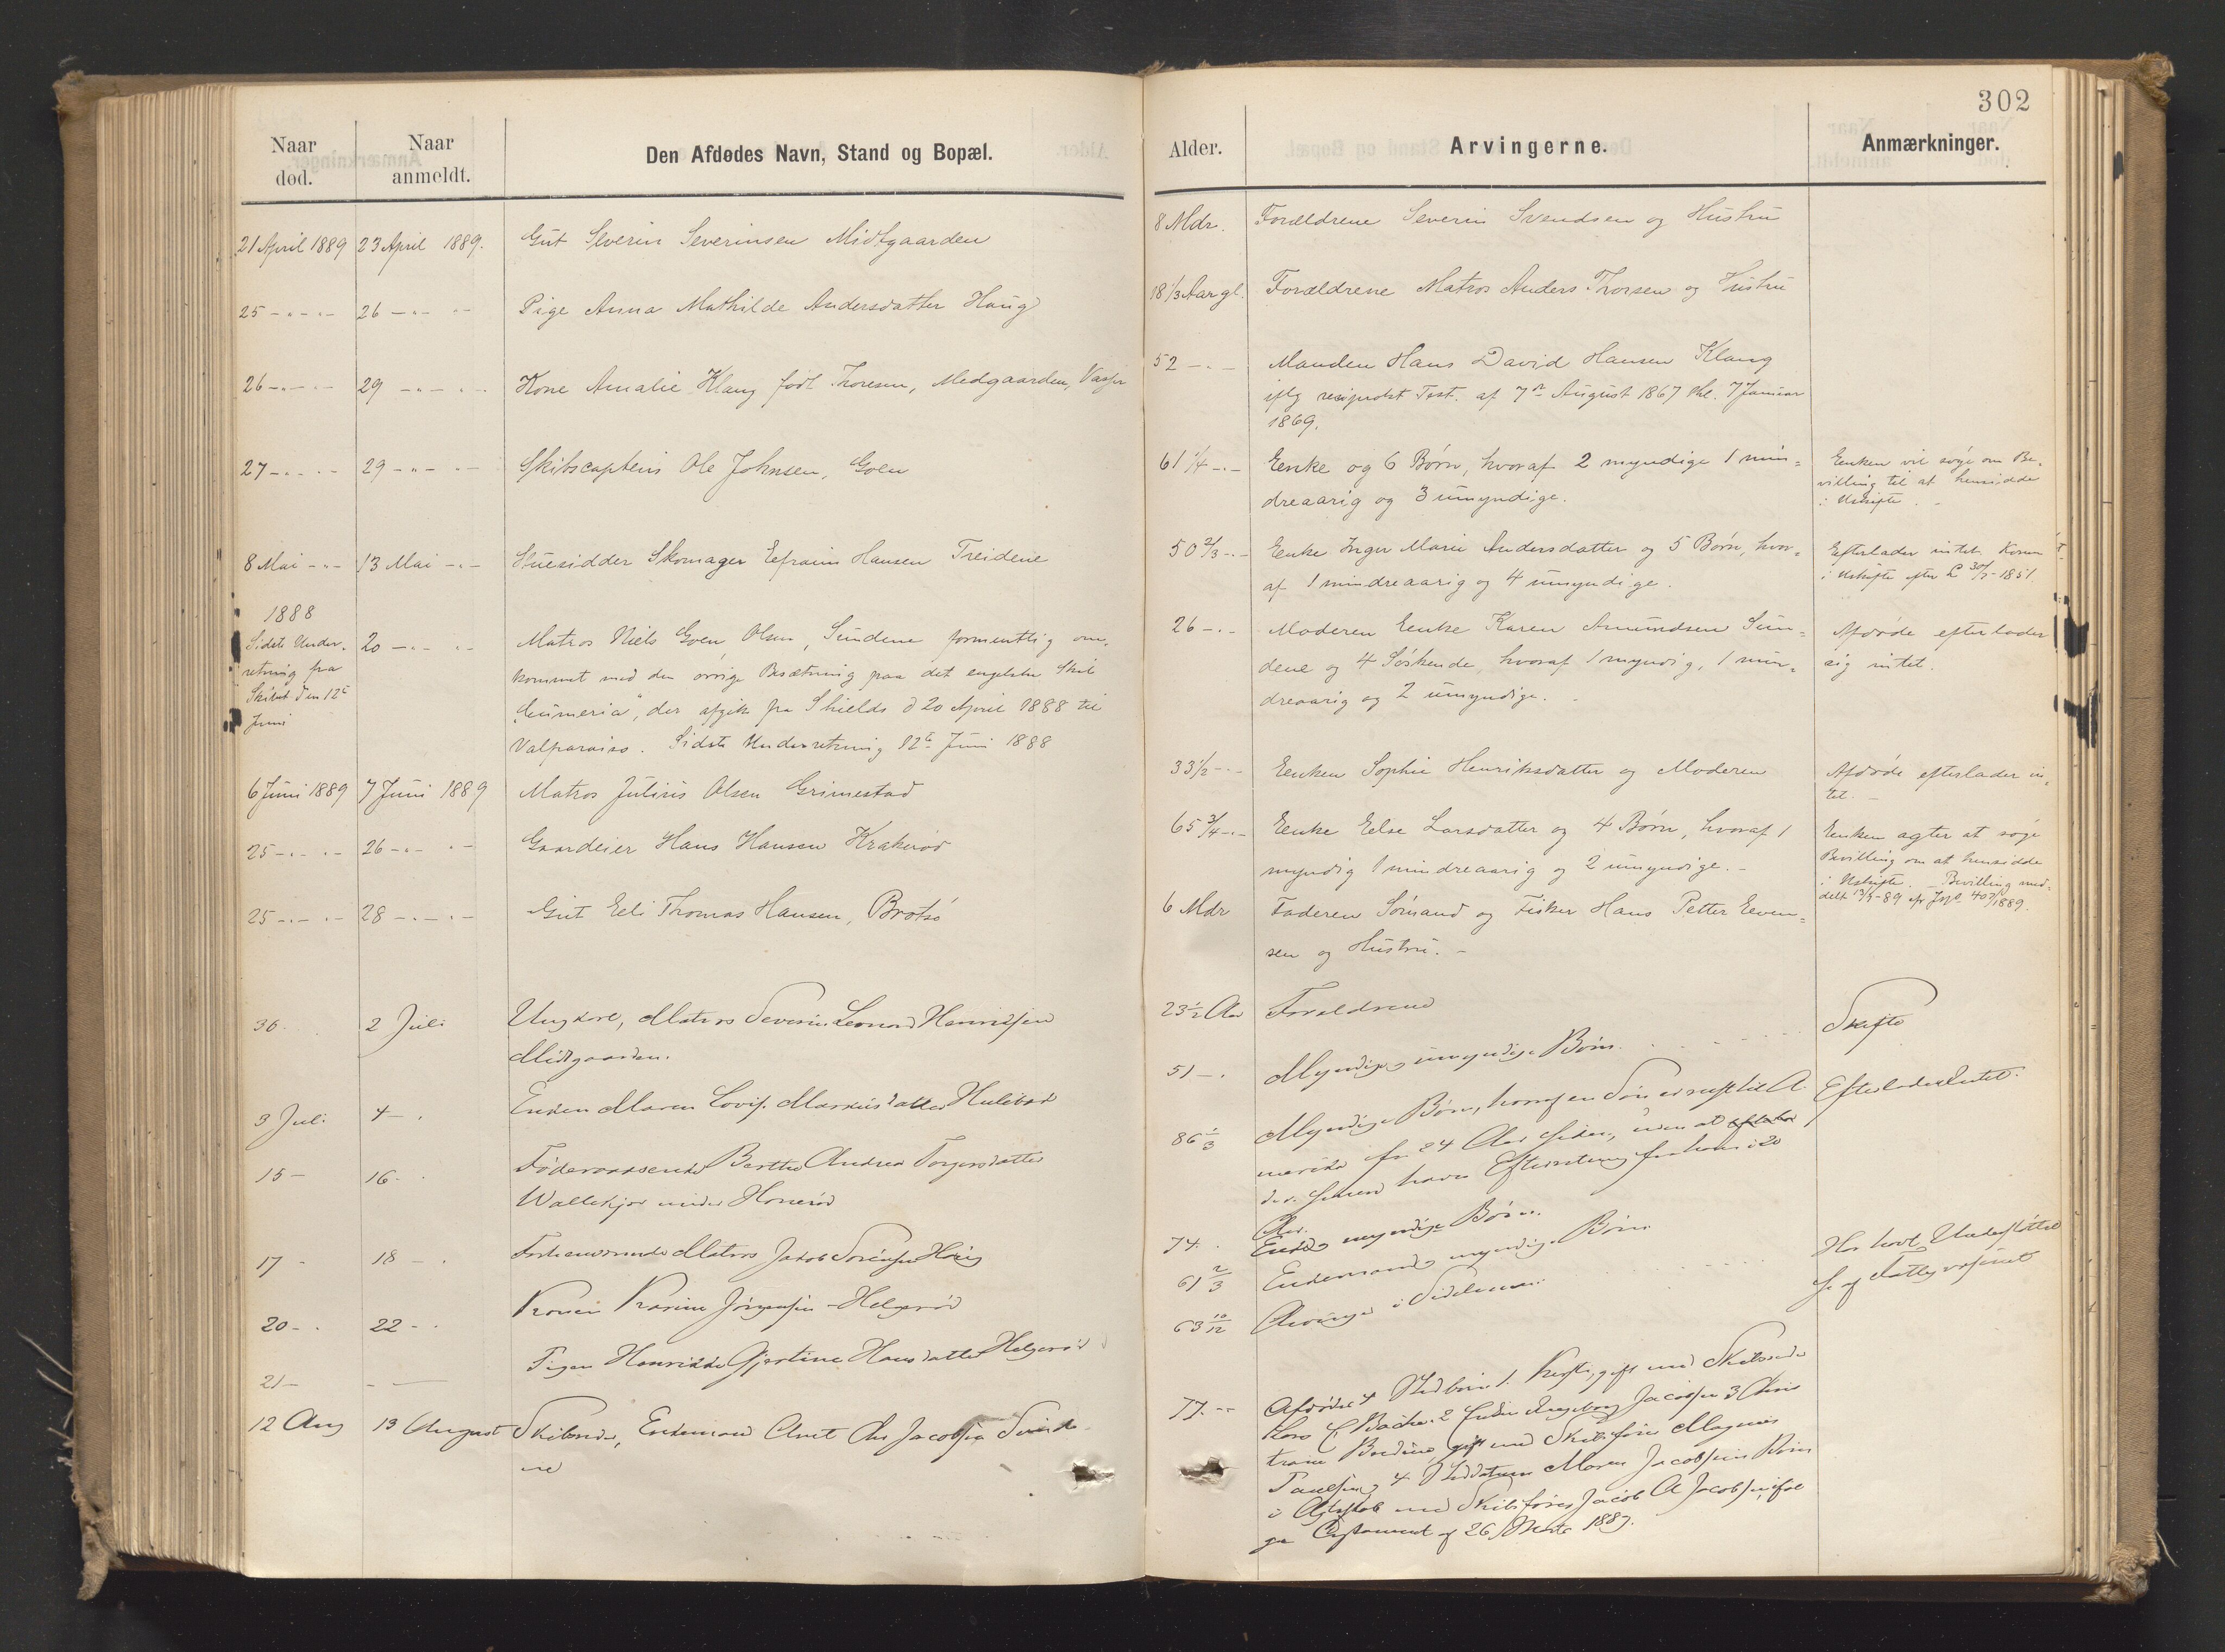 302
Naar
død.
Naar
anmeldt.
Den Afdødes Navn, Stand og Bopæl.
21 April 1889 23 April 1889. Gut Severin Severinsen Midtgaarden
25 - " - " - 26 - " - " - Pige Anna Mathilde Andersdatter Haug
26 - " - " - 29 - " - " - Kone Amalie Klang født Thoresen, Medgaarden,
27 - " - " - 29 - " - " - Skibscaptein Ole Johnsen, Goen
8 Mai - " - 13 Mai - " - Huusidder Skomager Eefraim Hansen Treidene
1888
Sidste Under-
retning fra
Skibet den 12te
Juni
20 - " - " - Matros Niels Goen Olsen, Sundene formentlig om-
kommet med den øvrige Besætning paa det engelske Skib
der afgik fra Shields d 20 April 1888 til
Valparaiso. Sidste Underretning 12te Juni 1888
6 Juni 1889 7 Juni 1889 Matros Julius Olsen Grimestad
25 - " - " - 26 - " - " - Gaardeier Hans Hansen Krakerød
25 - " - " - 28 - " - " - Gut Eeli Thomas Hansen, Brøtsø
30. 2 Juli Ungkarl, Matros Severin Leonard Henriksen
Midtgaarden.
3 Juli 4 - Enken Maren Lovise Markusdatter Hulebak
15 - 16 - Føderaadsenke Berthe Andrea Torgersdatter
under
17 - 18 - Matros Jakob Sørensen Haug
20 - 22 - Konen Karine Jørgensen Helgerød
21 - - Pigen Henrikke Gjertine Hansdatter Helgerød
12 Aug 13 August Skibsreder, Enkemand Anet Chr Jacobsen Sunde
ne
Alder.
Arvingerne.
Anmærkninger.
8 Mdr. Forældrene Severin Svendsen og Hustru
18 1/3 Aar gl. Forældrene Matros Anders Thorsen og Hustru
52 - " - Manden Hans David Hansen Klang
iflg reciprokt Test. af 7de August 1867 7 Januar
1869.
61 1/4 - " - Eenke og 6 Børn, hvoraf 2 myndige 1 min-
dreaarig og 3 umyndige.
Enken vil søge om Be-
villing til at hensidde
i Uskifte.
50 2/3 - " - Eenke Inger Marie Andersdatter og 5 Børn, hvor-
af 1 mindreaarig og 4 umyndige.
Efterlader intet. Konen
i Uskifte efter L 30/7-1851.
26 - " - Moderen Eenke Karen Amundsen Sun-
dene og 4 Søskende, hvoraf 1 myndig, 1 min-
dreaarig og 2 umyndige.
Afdøde efterlader
sig intet.
33 1/2 - " - Eenken Sophie Henriksdatter og Moderen
Afdøde efterlader in-
tet.
65 3/4 - " - Eenke Eelse Larsdatter og 4 Børn, hvoraf 1
myndig 1 mindreaarig og 2 umyndige. -
Eenken agter at søge
Bevilling om at hensidde
i Uskifte. - Bevilling med-
delt
6 Mdr Faderen Sømand og Fisker Hans Petter Eeven-
sen og Hustru. -
23 1/2 Aar Forældrene
51 - Myndige og umyndige Børn. Skifte
86 1/3 Myndige Børn, hvoraf en Søn er reist til A-
merika for 24 Aar siden, uden at
senere have Efterretning fra ham i 20
Aar.
Efterlader Intet.
74. Enke og myndige Børn.
61 2/3 Enkemand og myndige Børn
63 10/12 Arvinger i Sidelinien.
Har havt Understøttel
se af Fattigvæsenet
77. - Afdødes 4 Stedbørn 1. gift med Skibsreder
Bache. 2 Ingeborg Jacobsen 3
gift med Skibsfører Magnus
Paulsen, 4 Maren Jacobsens Børn
i Ægteskab med Skibsfører Jacob A Jacobsen, iføl
ge Testament af 26 Marts 1887.